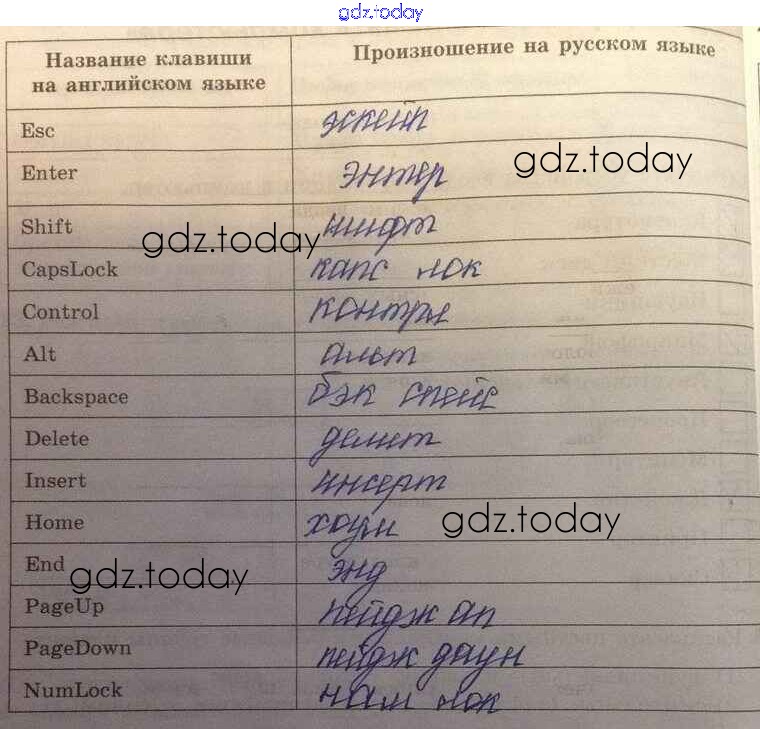 gdz.today
Название клавиши
на английском языке
Произношение на русском языке
Esc эскейп
Enter энтер
gdz.today
Shift шифт
gdz.today
CapsLock капс лок
Control контрл
Alt альт
Backspace бэк спейс
Delete делит
Insert инсерт
Home хоум
gdz.today
End энд
gdz.today
PageUp пейдж ап
PageDown пейдж даун
NumLock нам лок